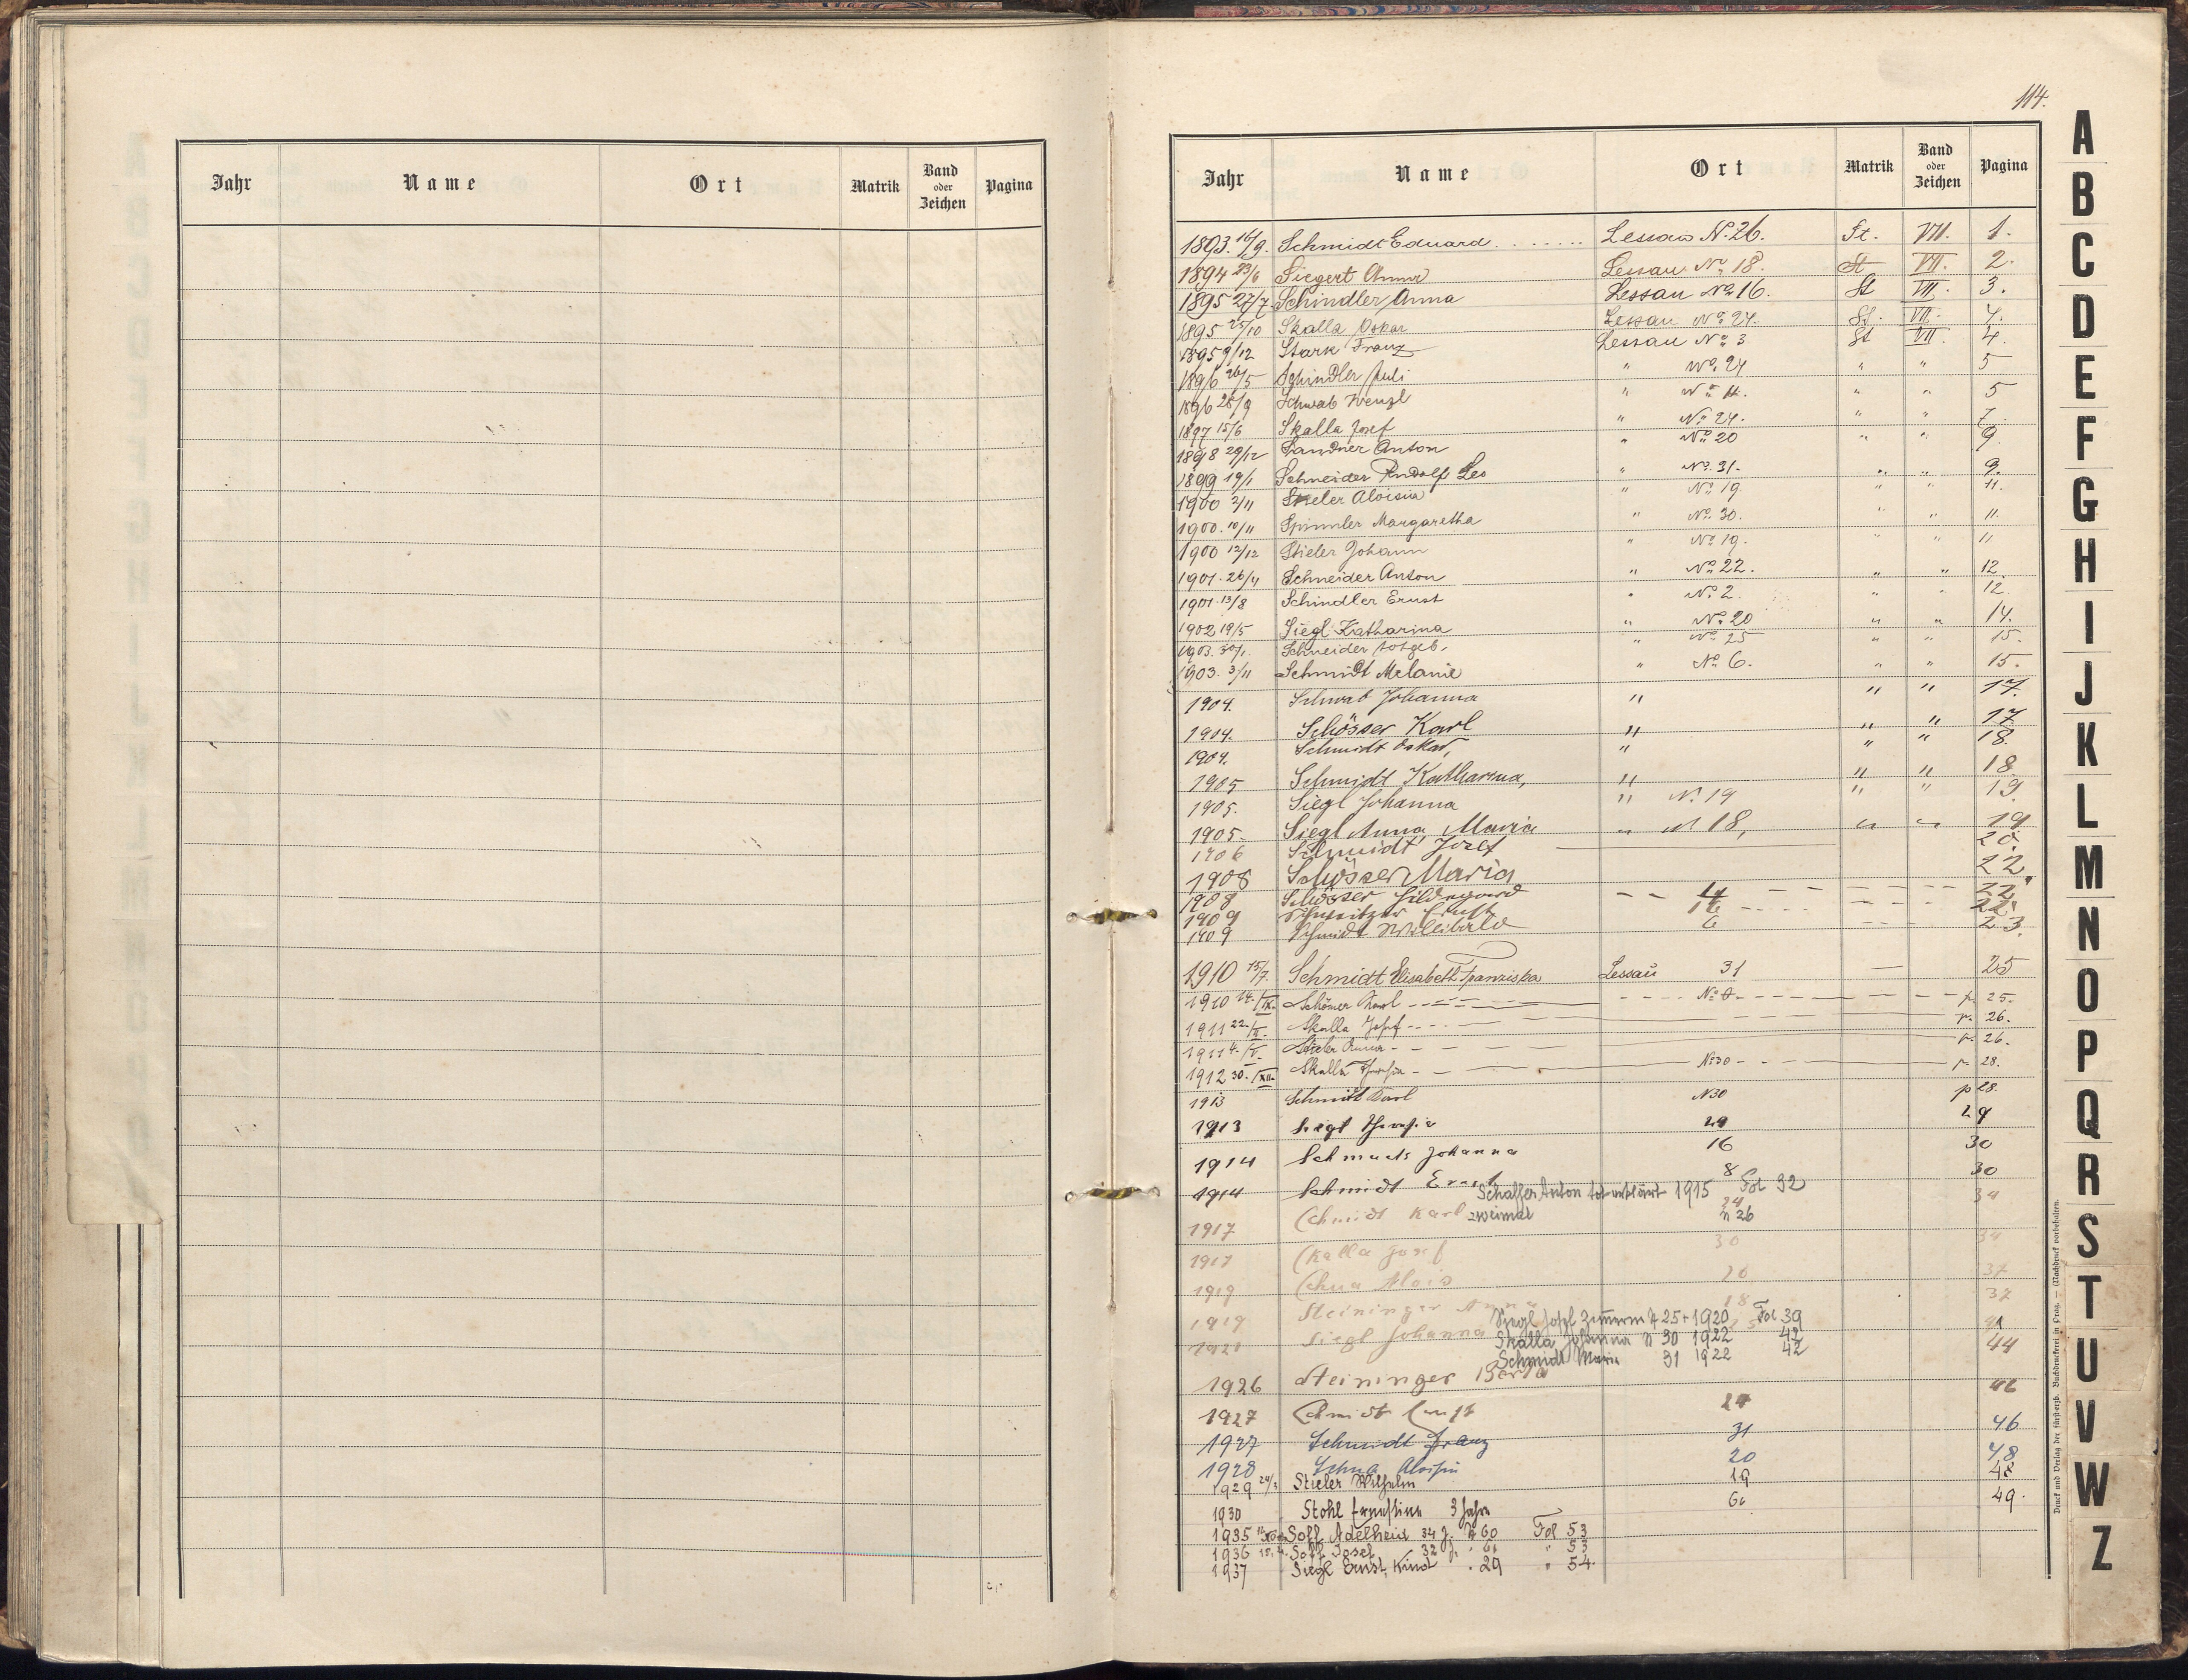 Jahr Name Ort Matrik Band oder Zeichen Pagina
114.
Jahr Name Ort Matrik Band oder Zeichen Pagina
1893. 16/9. Schmidt Eduard ........ Lessau N. 26. St. VII. 1.
1894 23/6 Siegert Anna Lessau No 18. St VII. 2.
1895 27/7 Schindler Anna Lessau No 16. St VII. 3.
1895 25/10 Skalla Oskar Lessau No 24. St. VII. 4.
1895 9/12 Stark Franz Lessau No 3 St VII. 4.
1896 26/5 Schindler Juli " No 24 " " 5
1896 28/9 Schwab Wenzl " No 11. " " 5
1897 15/6 Skalla Josef " No 24. " " 7.
1898 29/12 Sandner Anton " No 20 " " 9
1899 19/1 Schneider Rudolf Leo " No 31. " " 9.
1900 3/11 Stieler Aloisia " No 19 " " 11.
1900. 10/11 Spimler Margaretha " No 30. " " 11.
1900 12/12 Stieler Johann " No 19. " " 11
1901. 26/4 Schneider Anton " No 22. " " 12.
1901. 13/8 Schindler Ernst " No 2. " " 12.
1902 19/5 Siegl Katharina " No 20 " " 14.
1903. 30/1. Schneider totgeb. " No 25 " " 15.
1903. 3/11 Schmidt Melanie " No 6. " " 15.
1904. Schwab Johanna " " " 17.
1904. Schösser Karl " " " 17.
1904. Schmidt Oskar, " " " 18.
1905 Schmidt Katharina, " " " 18
1905. Siegl Johanna " N. 19 " " 19.
1905. Siegl Anna Maria " N 18, " " 19
1906 Schmidt Josef 20.
1908 Schösser Maria 22.
1908 Schösser Hildegard 22
1909 Ernst 16 22.
1909 Schmidt Willibald 6 23.
1910 15/7. Schmidt Elisabeth Franziska Lessau 31 25
1910 14./IX. Karl p. 25.
1911 22./II. Skalla Josef p. 26.
1911 4./V. Stieler Anna p. 26.
1912 30./XII. Skalla Theresia No 30 p. 28.
1913 Schmidt Karl N 30 p 28.
1913 Siegl Theresia 29 29
1914 Johanna 16 30
1914 Schmidt Ernst 8 30
Schaffer Anton tot erklärt 1915 Fol 32
1917 Schmidt Karl zweimal 24 n 26 34
1917 Skalla Josef 30 34
1919 Schua Alois 20 37
1919 Steininger Anna 18 37
Siegl Josef Zimmerm N 25 + 1920 Fol 39
1921 Siegl Johanna 41
Skalla Johanna N 30 1922 42
Schmidt Maria 31 1922 42
1926 Steininger Berta 44
1927 Schmidt Ernst 24 46
1927 Schmidt Franz 31 46
1928 Schua Aloisia 20 48
1929 24/3 Stieler Wilhelm 19 48
1930 Stohl Ernestine 3 Jahre 60 49.
1935 Soll Adelheid 34 J. N 60 Fol 53
1936 Josef 32 J. " 61 " 53
1937 Siegl Ernst, Kind . 29 " 54.
A
B
C
D
E
F
G
H
I
J
K
L
M
N
O
P
Q
R
S
T
U
V
W
Z
Druck und Verlag der fürsterzb. Buchdruckerei in Prag. — (Nachdruck vorbehalten.